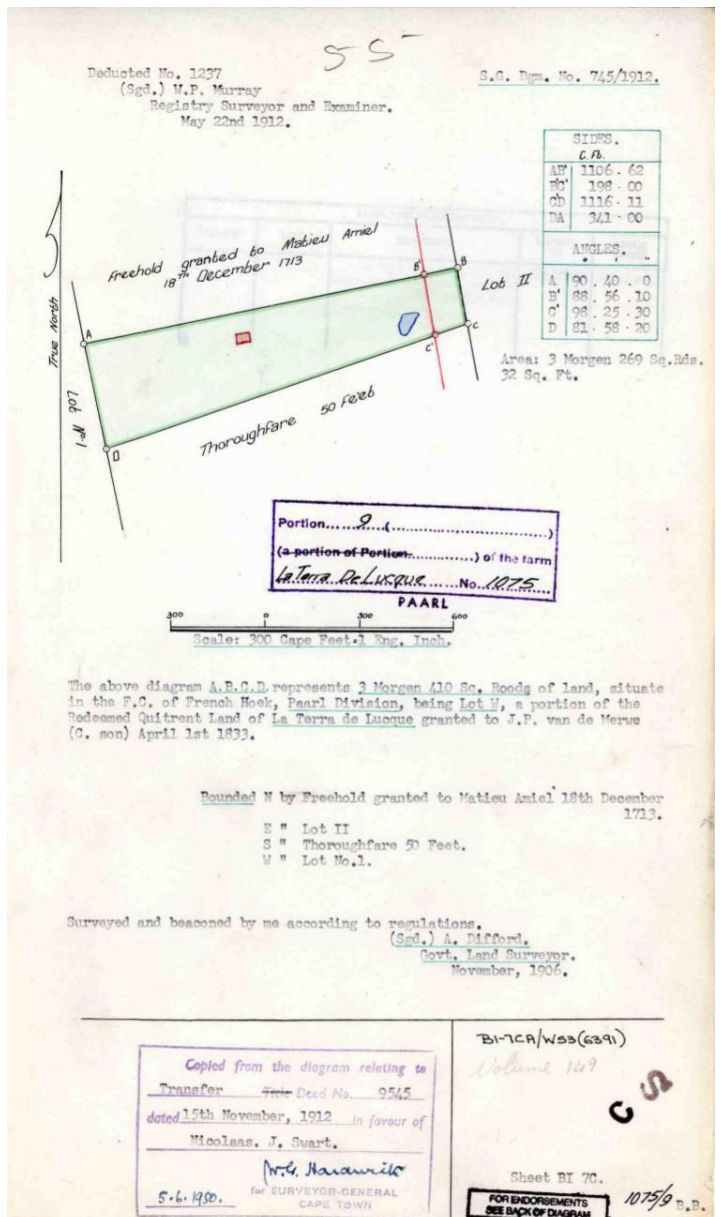 55
Deducted No. 1237
(Sgd.) W.P. Murray
Registry Surveyor and Examiner.
May 22nd 1912.
S.G. Dgm. No. 745/1912.
SIDES.
C. Ft.
AB' 1106 . 62
B'C' 198 . 00
C'D 1116 . 11
DA 341 . 00
ANGLES.
° ' "
A 90 . 40 . 0
B' 88 . 56 . 10
C' 98 . 25 . 30
D 81 . 58 . 20
Area: 3 Morgen 269 Sq.Rds.
32 Sq. Ft.
True North
Freehold granted to Matieu Amiel
18th December 1713
A
B'
B
Lot II
C
C'
D
Lot No 1
Thoroughfare 50 Feet
Portion......9..(..............................)
(a portion of Portion................) of the farm
La Terra De Lucque......No. 1075......
PAARL
300 0 300 600
Scale: 300 Cape Feet=1 Eng. Inch.
The above diagram A.B.C.D. represents 3 Morgen 410 Sq. Roods of land, situate
in the F.C. of French Hoek, Paarl Division, being Lot W, a portion of the
Redeemed Quitrent Land of La Terra de Lucque granted to J.P. van de Merwe
(C. son) April 1st 1833.
Bounded N by Freehold granted to Matieu Amiel 18th December
1713.
E " Lot II
S " Thoroughfare 50 Feet.
W " Lot No.1.
Surveyed and beaconed by me according to regulations.
(Sgd.) A. Difford.
Govt. Land Surveyor.
November, 1906.
Copied from the diagram relating to
Transfer Title Deed No. 9545
dated 15th November, 1912 in favour of
Nicolaas. J. Swart.
W.G. Hardwick
5.6.1950. for SURVEYOR-GENERAL
CAPE TOWN
BI-7CA/W53(6391)
Volume 149
C S
Sheet BI 7C.
FOR ENDORSEMENTS
SEE BACK OF DIAGRAM
1075/9 B.B.